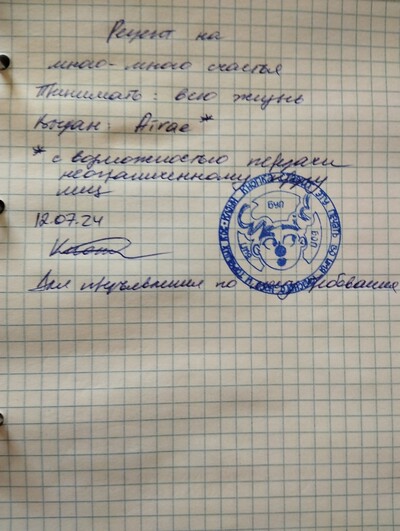 Рецепт на
много-много счастья
Принимать: всю жизнь
Выдан: Airae *
* с возможностью передачи
неограниченному кругу
лиц
12.07.24
Для предъявления по требования
БУП
БОП